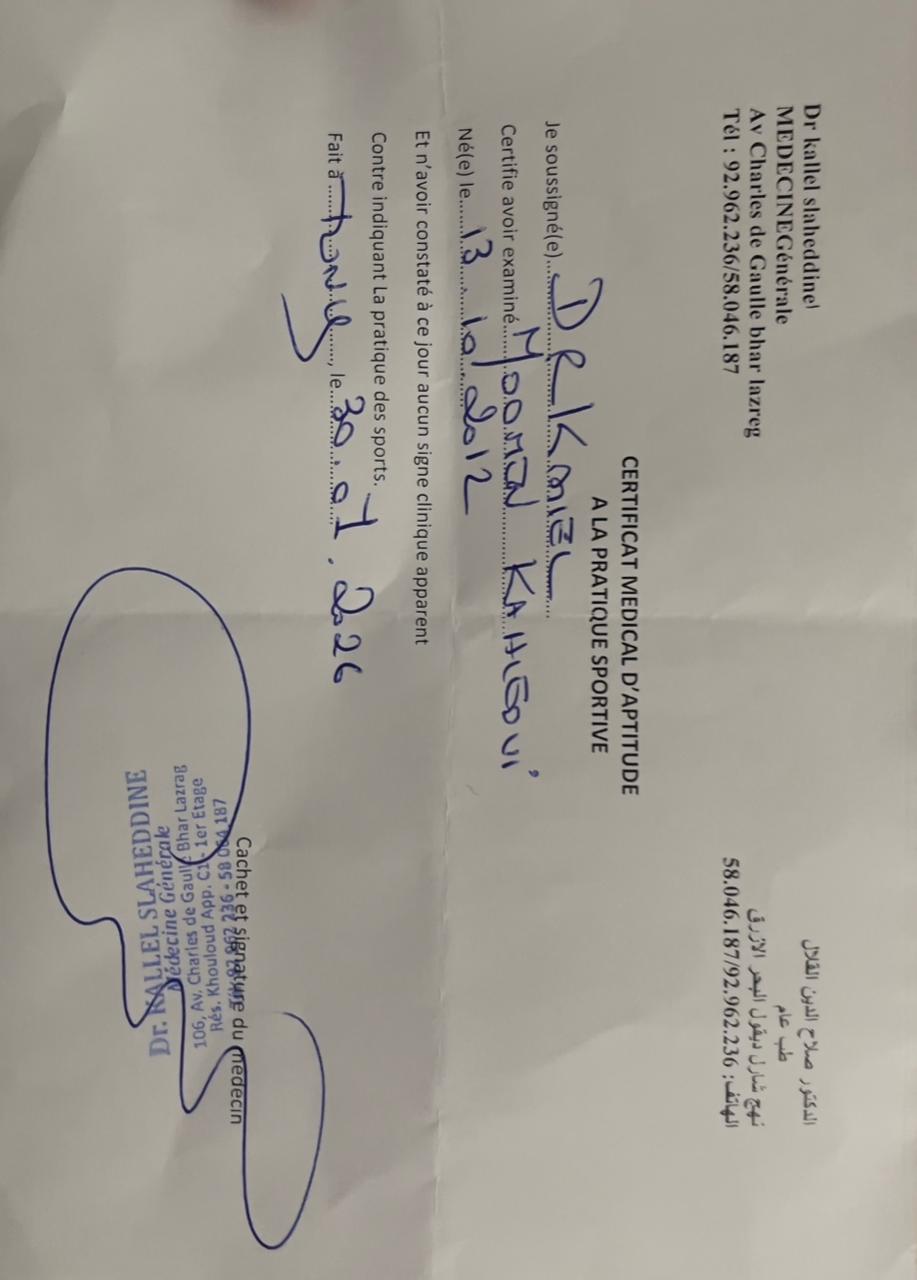 Dr kallel slaheddinel
MEDECINEGénérale
Av Charles de Gaulle bhar lazreg
Tél : 92.962.236/58.046.187
الدكتور صلاح الدين القلال
طب عام
نهج شارل ديقول البحر الازرق
الهاتف: 58.046.187/92.962.236
CERTIFICAT MEDICAL D'APTITUDE
A LA PRATIQUE SPORTIVE
Je soussigné(e)... DR Kallel
Certifie avoir examiné... MOOMEN KAHLEOUI
Né(e) le... 13 10 2012
Et n'avoir constaté à ce jour aucun signe clinique apparent
Contre indiquant La pratique des sports.
Fait à ... Tunis ..., le... 30.01.2026
Cachet et signature du medecin
Dr. KALLEL SLAHEDDINE
Médecine Générale
106, Av. Charles de Gaulle Bhar Lazrag
Rés. Khouloud App. C1 - 1er Etage